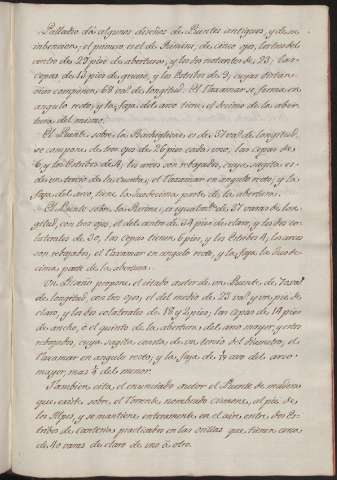 Palladio dá algunos diseños de Puentes antiguos y de su
inbencion; el primero es el de Rimini, de cinco ojos, los tres del
centro de 29 pies de abertura, y los dos restantes de 23; las
cepas de 13 pies de grueso, y los Estribos de 9, cuyas distan-
cias componen 68 vas de longitud. El Taxamar se forma en
angulo recto, y la faja del arco tiene el decimo de la aber-
tura del mismo.
El Puente sobre la Bachiglione es de 37 vas de longitud,
se compone de tres ojos de 26 pies cada uno, las cepas de
6 y los Estribos de 4, los arcos son rebajados, cuya sagita es
de un tercio de la cuerda; el Taxamar en angulo recto, y la
faja del arco, tiene la duodecima parte de la abertura.
El Puente sobre la Rerone, es igualmte de 37 varas de lon-
gitud, con tres ojos, el del centro de 34 pies de claro, y los dos co-
laterales de 30, las cepas tienen 6 pies, y los Estribos 4, los arcos
son rebajados, el Taxamar en angulo recto, y la faja la duode-
cima parte de la abertura.
Un Diseño propone el citado autor de un Puente de 70 vas
de longitud, con tres ojos, el del medio de 23 vas y un pie de
claro, y los dos colaterales de 18 y 2 pies, las cepas de 14 pies
de ancho, ó el quinto de la abertura, del arco mayor, y este
rebajado, cuya sagita consta de un tercio del diametro, el
Taxamar en angulo recto, y la faja de del arco
mayor, mas del menor.
Tambien cita el enunciado autor el Puente de madera
que existe sobre el Torrente nombrado Cismone, al pie de
los Alpes, y se mantiene enteramente en el aire, entre dos Es-
tribos de Canteria practicados en las orillas que tienen cerca
de 40 varas de claro de uno á otro.